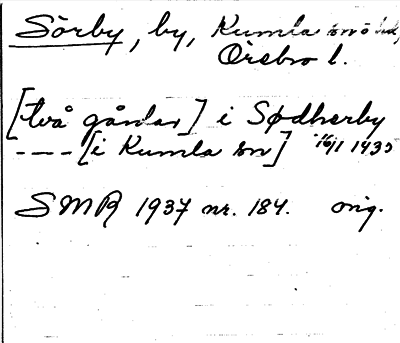 Sörby, by, Kumla sn o hd,
Örebro l.
[två gårdar] i Sødherby
---- [i Kumla sn] 16/1 1435
SMR 1937 nr. 184. orig.